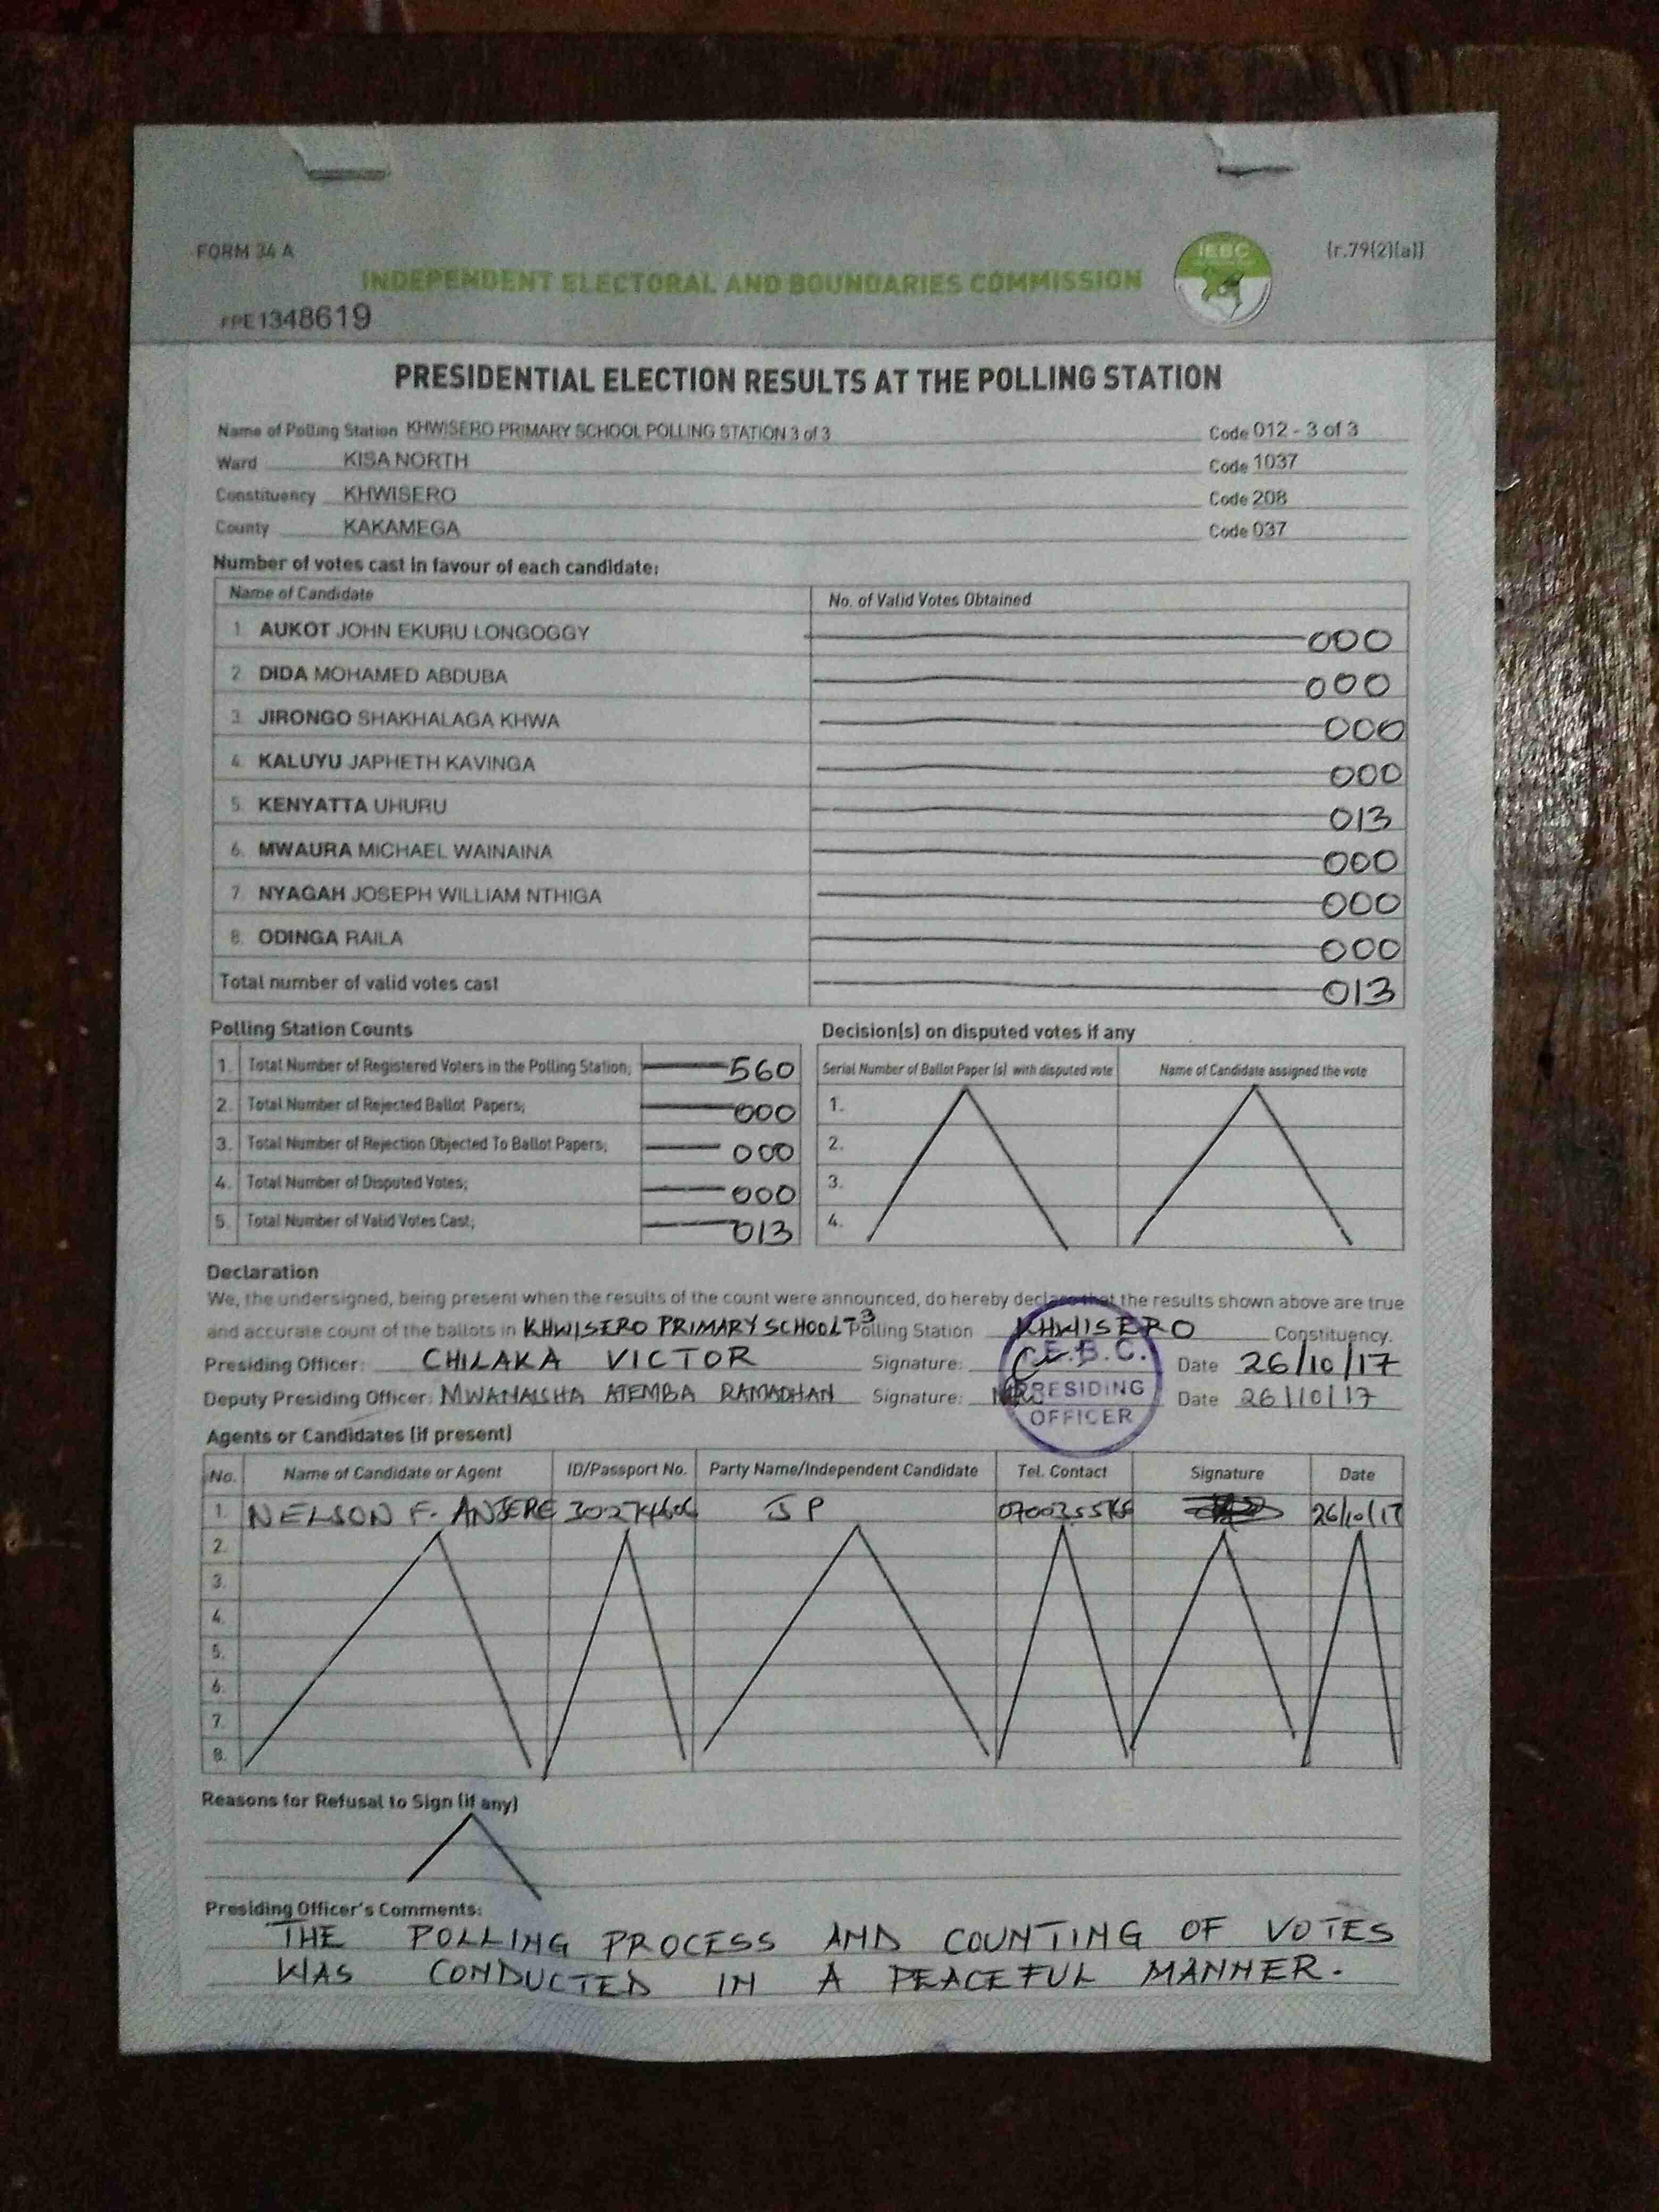 FORM 34 A
(r.79(2)(a))
IEBC
INDEPENDENT ELECTORAL AND BOUNDARIES COMMISSION
FPE1348619
PRESIDENTIAL ELECTION RESULTS AT THE POLLING STATION
Name of Polling Station KHWISERO PRIMARY SCHOOL POLLING STATION 3 of 3 Code 012 - 3 of 3
Ward KISA NORTH Code 1037
Constituency KHWISERO Code 208
County KAKAMEGA Code 037
Number of votes cast in favour of each candidate:
Name of Candidate No. of Valid Votes Obtained
1. AUKOT JOHN EKURU LONGOGGY 000
2. DIDA MOHAMED ABDUBA 000
3. JIRONGO SHAKHALAGA KHWA 000
4. KALUYU JAPHETH KAVINGA 000
5. KENYATTA UHURU 013
6. MWAURA MICHAEL WAINAINA 000
7. NYAGAH JOSEPH WILLIAM NTHIGA 000
8. ODINGA RAILA 000
Total number of valid votes cast 013
Polling Station Counts
1. Total Number of Registered Voters in the Polling Station; 560
2. Total Number of Rejected Ballot Papers; 000
3. Total Number of Rejection Objected To Ballot Papers; 000
4. Total Number of Disputed Votes; 000
5. Total Number of Valid Votes Cast; 013
Decision(s) on disputed votes if any
Serial Number of Ballot Paper (s) with disputed vote Name of Candidate assigned the vote
1.
2.
3.
4.
Declaration
We, the undersigned, being present when the results of the count were announced, do hereby declare that the results shown above are true
and accurate count of the ballots in KHWISERO PRIMARY SCHOOL-3 Polling Station KHWISERO Constituency.
Presiding Officer: CHILAKA VICTOR Signature: Date 26/10/17
Deputy Presiding Officer: MWANAISHA ATEMBA RAMADHAN Signature: Date 26/10/17
I.E.B.C.
PRESIDING
OFFICER
Agents or Candidates (if present)
No. Name of Candidate or Agent ID/Passport No. Party Name/Independent Candidate Tel. Contact Signature Date
1. NELSON F. ANJERE JP 26/10/17
2.
3.
4.
5.
6.
7.
8.
Reasons for Refusal to Sign (if any)
Presiding Officer's Comments:
THE POLLING PROCESS AND COUNTING OF VOTES
WAS CONDUCTED IN A PEACEFUL MANNER.